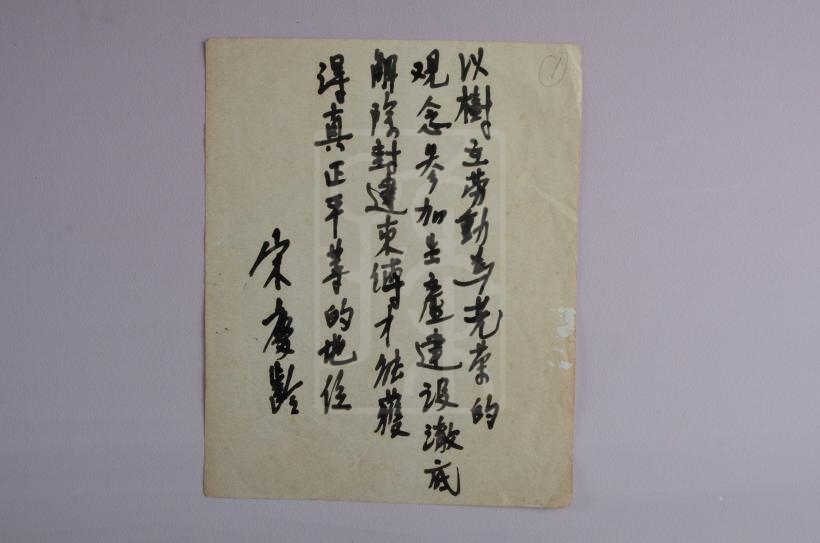 以樹立劳動为光荣的
观念参加生產建设澈底
解除封建束缚才能獲
得真正平等的地位
宋慶齡
1